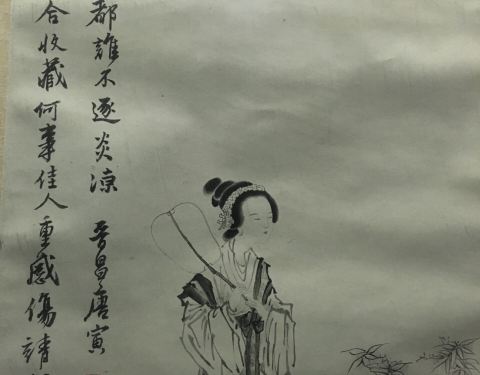 合收藏何事佳人重感傷請
都誰不逐炎凉 晉昌唐寅